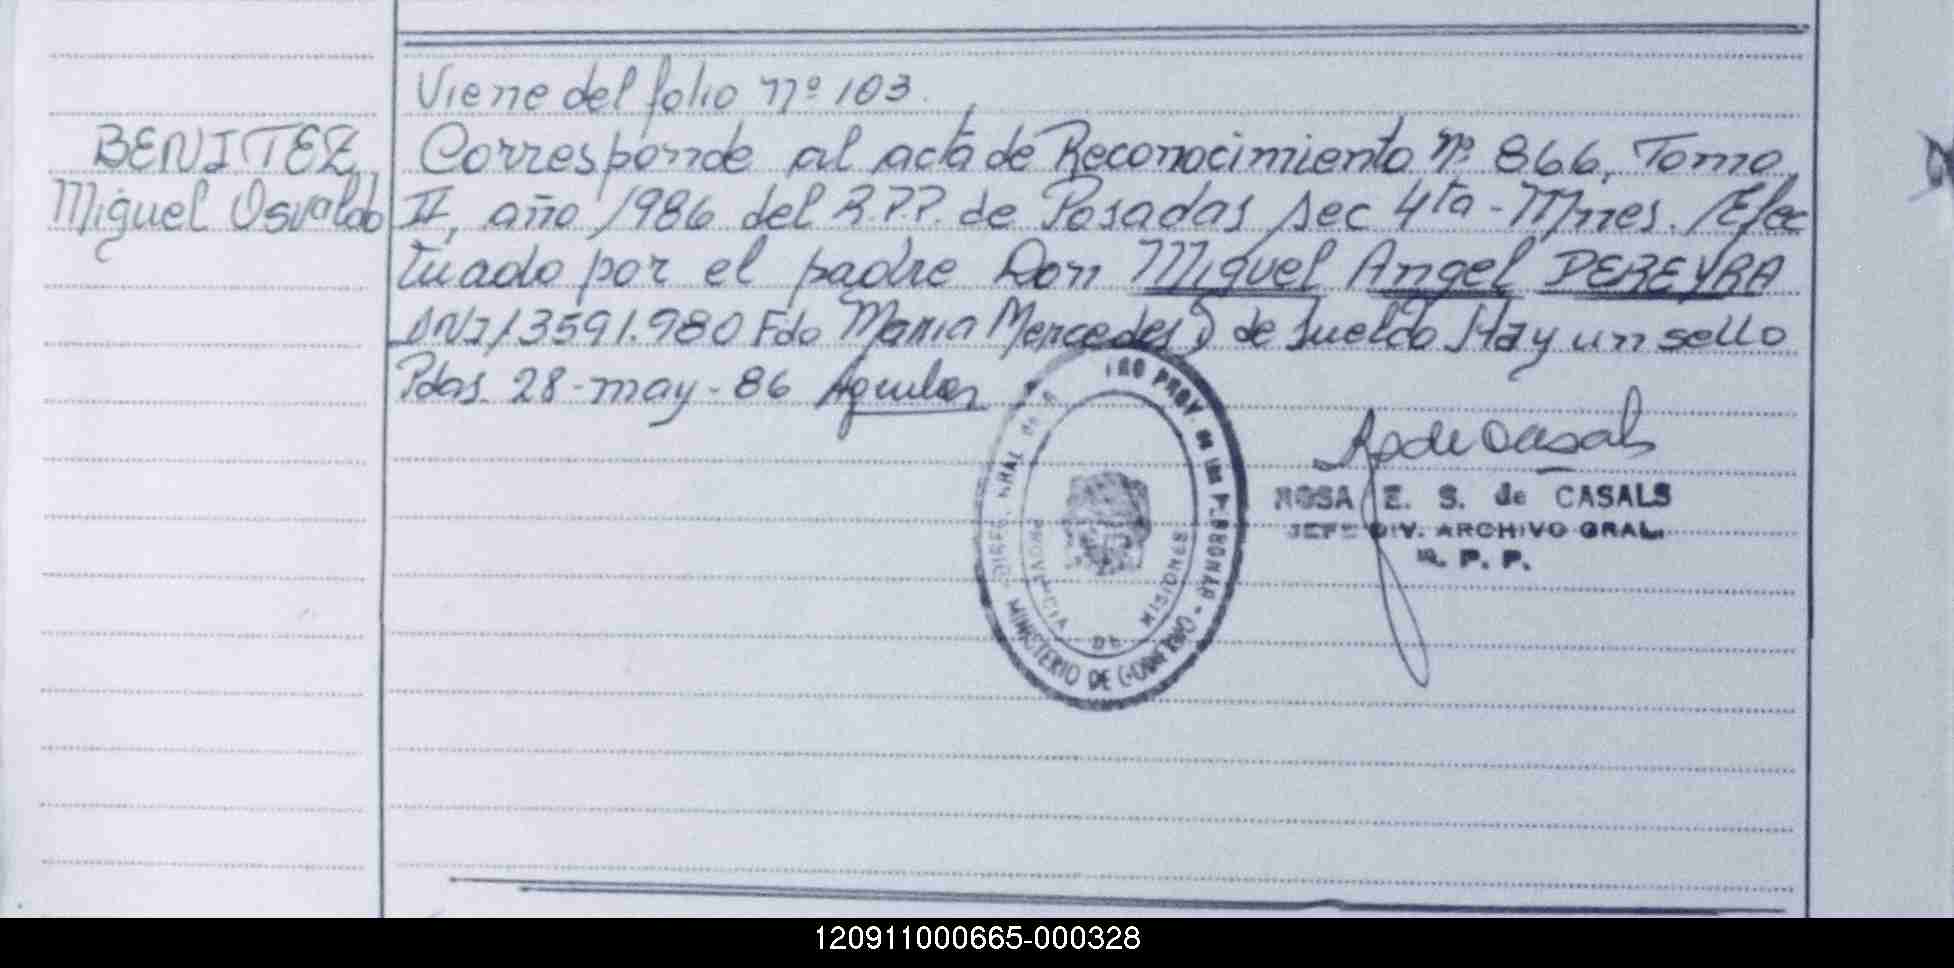 Viene del folio nº 103.
BENITEZ
Miguel Osvaldo
Corresponde al acta de Reconocimiento nº 866, Tomo
II, año 1986 del R.P.P. de Posadas sec 4ta - Mnes. Efec
tuado por el padre Don Miguel Angel PEREYRA
DNI 13591.980 Fdo Maria Mercedes D de Sueldo Hay un sello
Pdas. 28-may-86 Aguilar
MINISTERIO DE GOBIERNO
PROVINCIA DE MISIONES
ROSA E. S. de CASALS
JEFE DIV. ARCHIVO GRAL.
R. P. P.
120911000665-000328